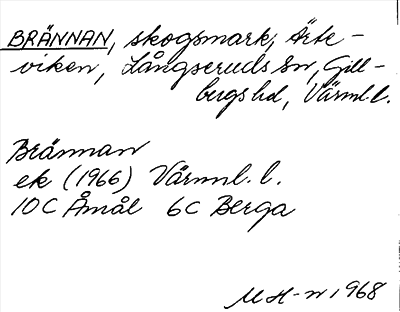 BRÄNNAN, skogsmark, Ärte-
viken, Långseruds sn, Gill-
bergs hd, Värml. l.
Brännan
ek (1966) Värml. l.
10 C Åmål 6 C Berga
M H-n 1968